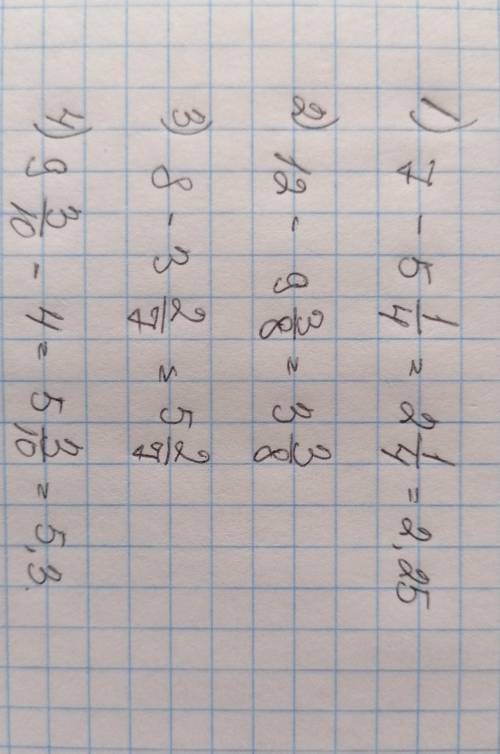 1) 7 - 5 1/4 = 2 1/4 = 2,25
2) 12 - 9 3/8 = 3 3/8
3) 8 - 3 2/7 = 5 2/7
4) 9 3/10 - 4 = 5 3/10 = 5,3.